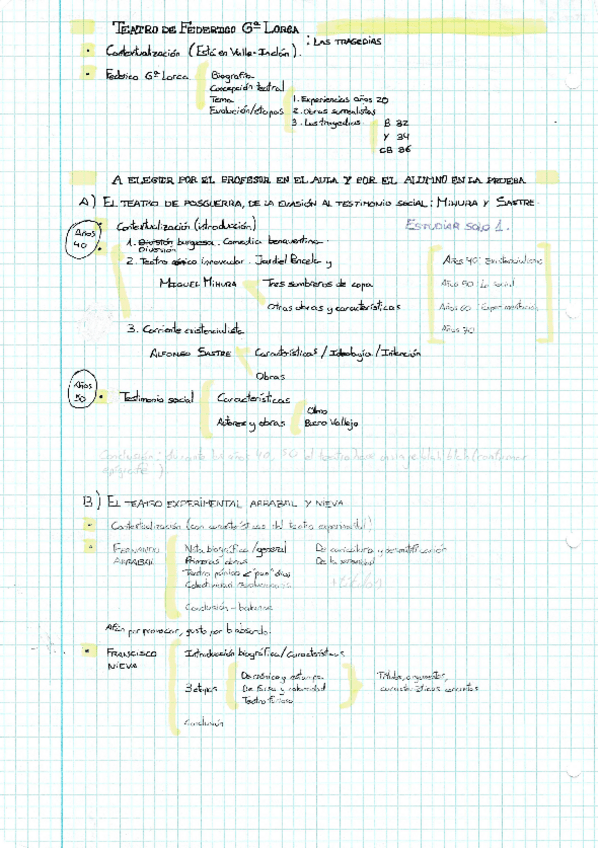 TEATRO DE FEDERICO Gª LORCA : LAS TRAGEDIAS
• Contextualización (Está en Valle-Inclán).
• Federico Gª Lorca
Biografía
Concepción teatral
Tema
Evolución/etapas
1. Experiencias años 20
2. Obras surrealistas
3. Las tragedias
B 32
Y 34
CB 36
A ELEGIR POR EL PROFESOR EN EL AULA Y POR EL ALUMNO EN LA PRUEBA
A) EL TEATRO DE POSGUERRA, DE LA EVASIÓN AL TESTIMONIO SOCIAL: MIHURA Y SASTRE.
• Contextualización (introducción)
ESTUDIAR SOLO 1.
Años 40
1. burguesa. Comedia benaventina.
Diversión
2. Teatro innovador. Jardiel Poncela y
MIGUEL MIHURA
Tres sombreros de copa
Otras obras y características
Años 40: Existencialismo
Años 50: Lo social
Años 60: Experimentación
Años 70
3. Corriente existencialista
ALFONSO SASTRE
Características / Ideología / Intención
Obras
Años 50
• Testimonio social
Características
Autores y obras
Olmo
Buero Vallejo
Conclusión: durante los años 40, 50 el teatro
B) EL TEATRO EXPERIMENTAL ARRABAL Y NIEVA
• Contextualización (con características del teatro experimental)
• FERNANDO ARRABAL
Nota biográfica / general
Primeras obras
Teatro pánico
Conclusión - balance
De caricatura y
De la
Afán por provocar, gusto por lo absurdo.
• FRANCISCO NIEVA
Introducción biográfica / Características
3 etapas
De crónica y estampa
De farsa y calamidad
Teatro furioso
Títulos, argumentos,
características concretas
Conclusión